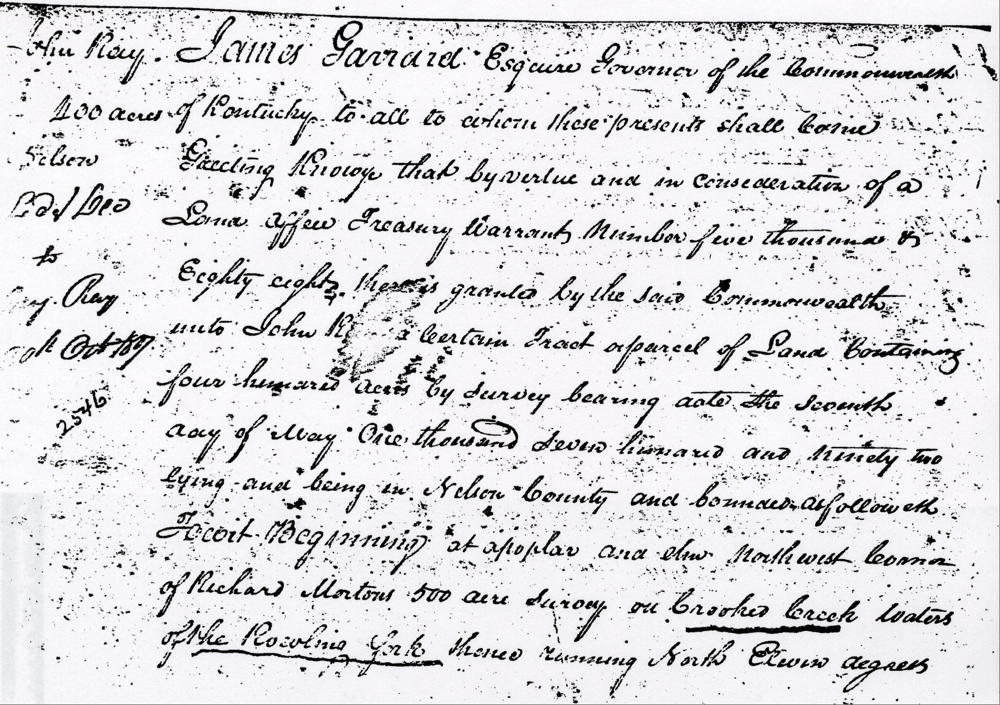 John Ray.
400 acres
Nelson
to
Ray
Oct 1807
2546
James Garrard Esquire Governor of the Commonwealth
of Kentucky to all to whom these presents shall Come
Greeting Knowye that by virtue and in consideration of a
Land Office Treasury Warrant Number five thousand &
Eighty eight there is granted by the said Commonwealth
unto John a Certain Tract or parcel of Land Containing
four hundred acres by survey bearing date the Seventh
day of May One thousand Seven hundred and Ninety two
lying and being in Nelson County and bounded as followeth
Towit Beginning at a poplar and elm Northwest Corner
of Richard Mortons 500 acre Survey on Crooked Creek waters
of the Rowling fork thence running North Eleven degrees